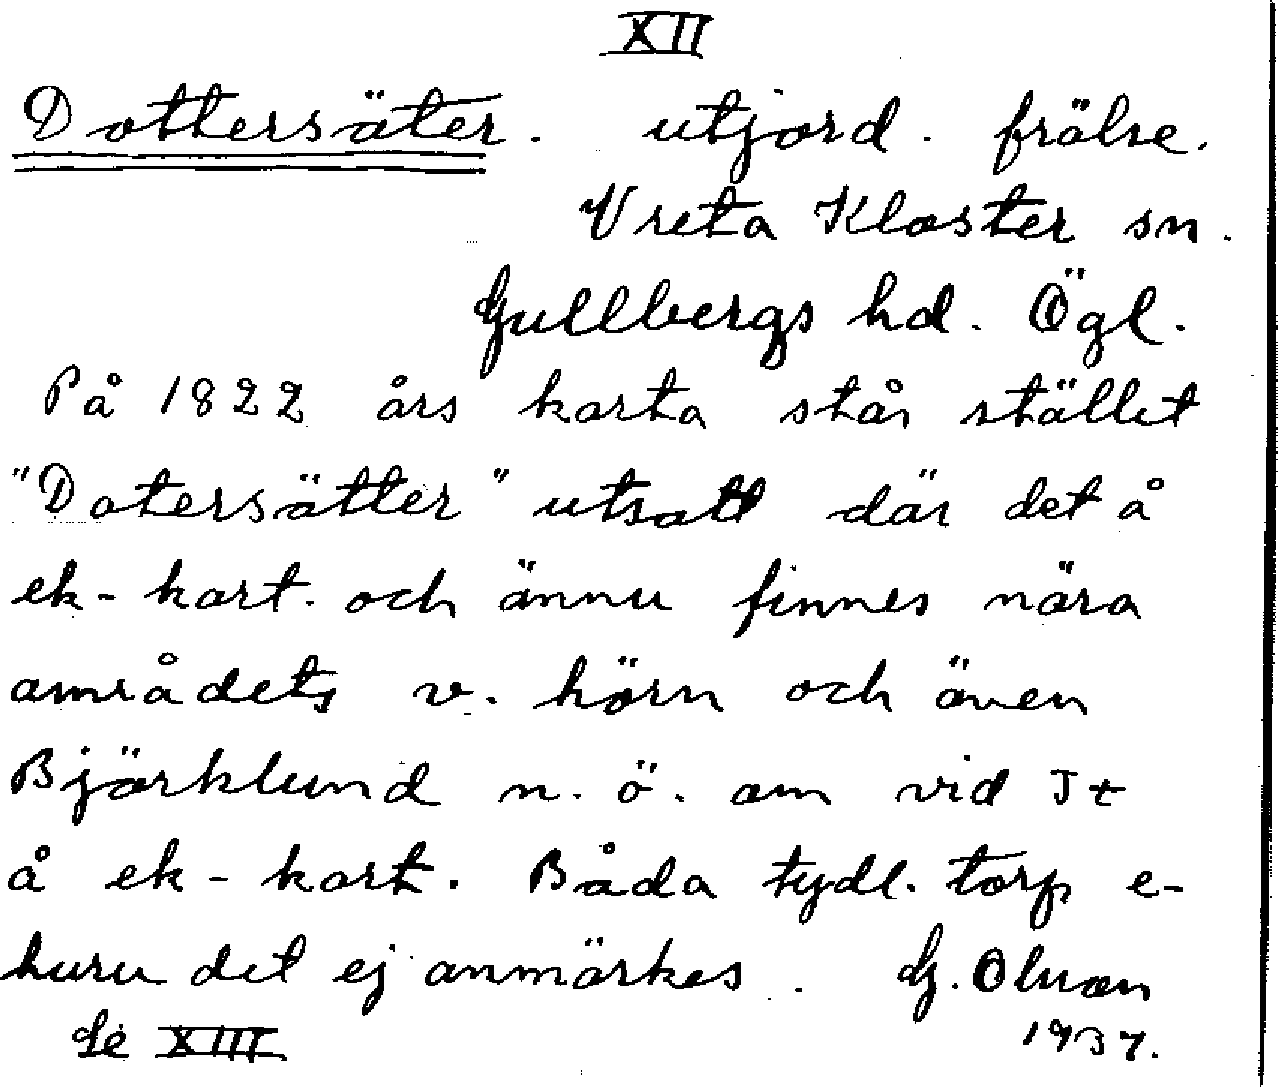 XII
Dottersäter. utjord. frälse.
Vreta Kloster sn.
Gullbergs hd. Ögl.
På 1822 års karta står stället
"Dotersätter" utsatt där det å
ek-kart. och ännu finnes nära
områdets v. hörn och även
Björklund n. ö. om vid Jt
å ek-kart. Båda tydl. torp e-
huru det ej anmärkes. G. Olson
Se XIII 1937.